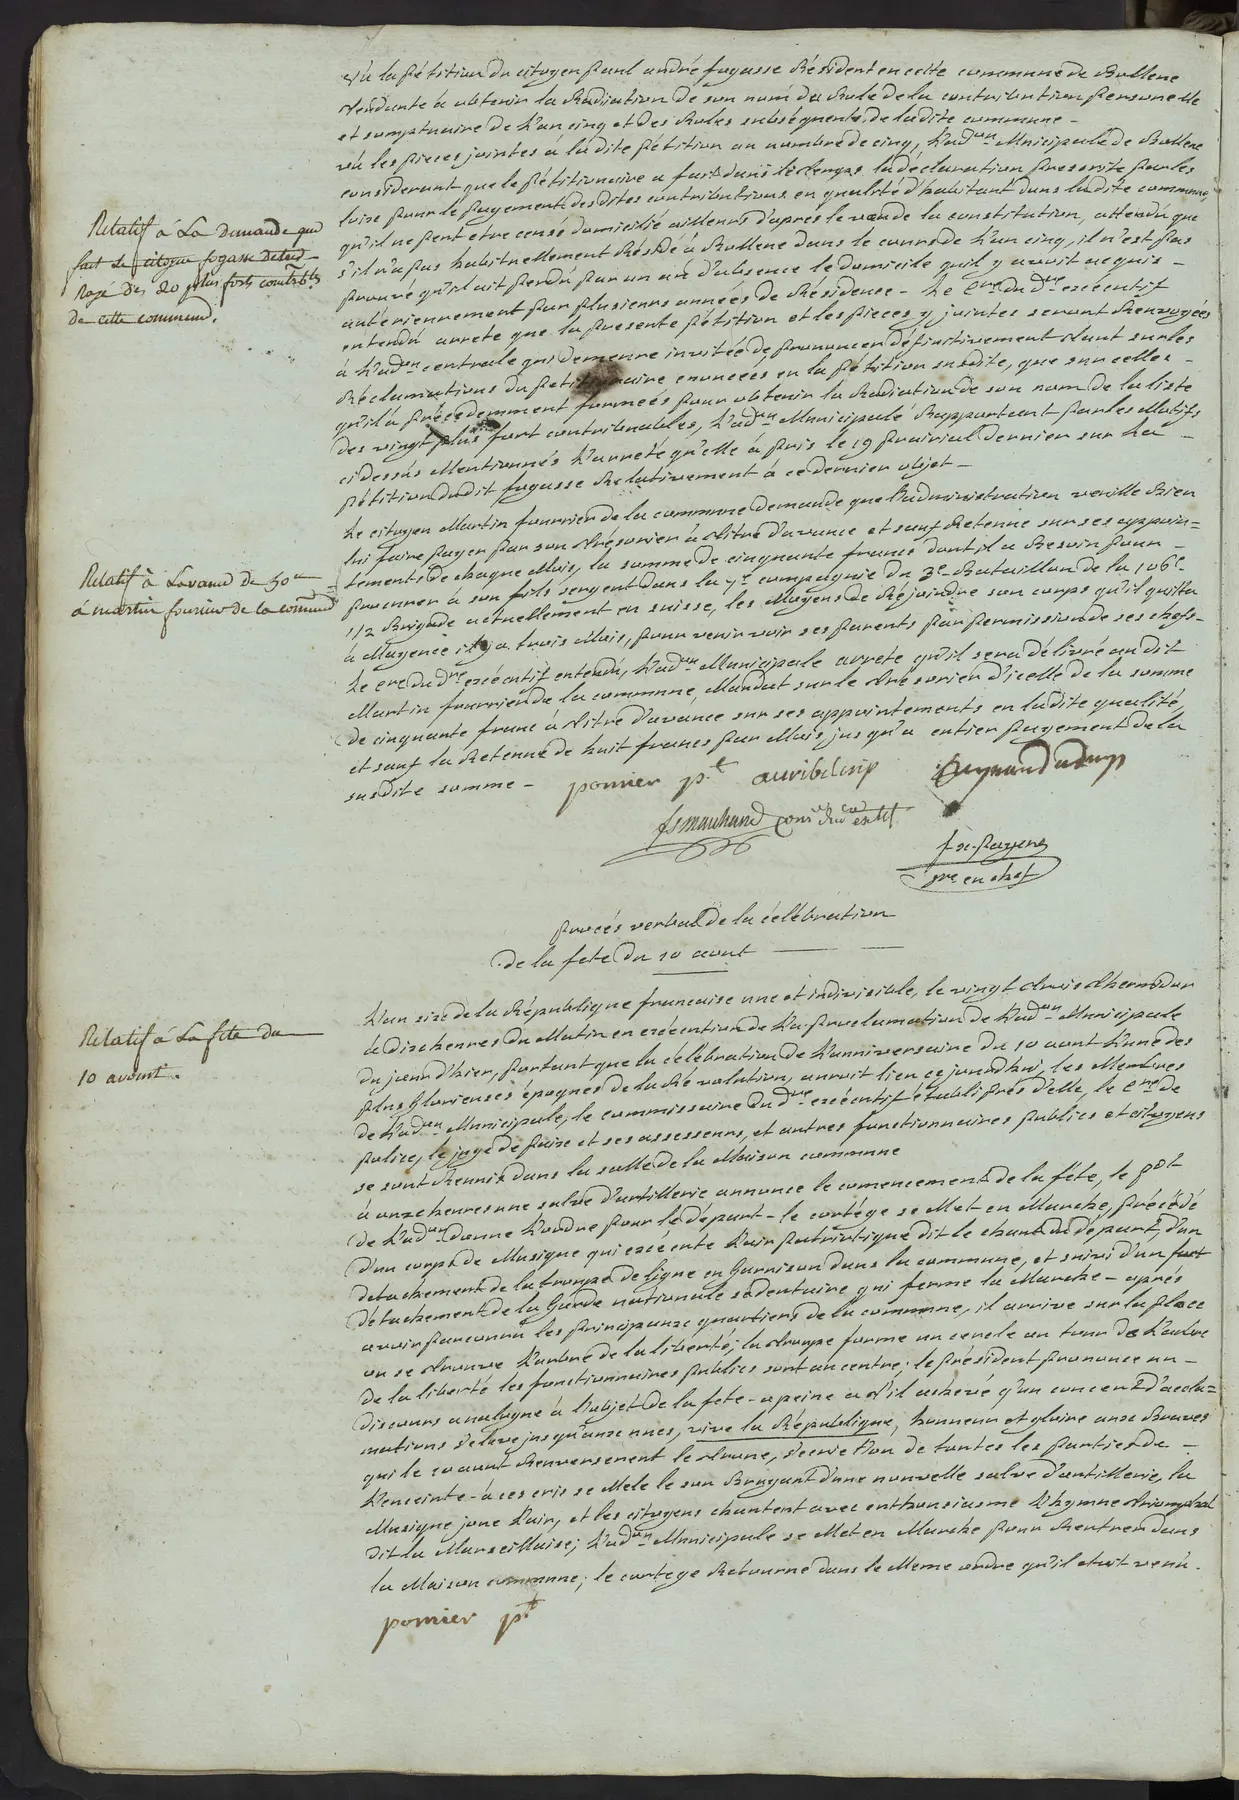 Vu la Pétition du citoyen paul andré fogasse Résident en cette commune de Bollene
tendante à obtenir la Radiation de son nom du Role de la contribution personnelle
et somptuaire de L'an cinq et des Roles subséquents de la dite commune -
vu les pieces jointes à la dite pétition au nombre de cinq, L'adon Municipale de Bollene
considerant que le pétitionnaire a fait dans le tems la déclaration prescrite par les
loix pour le payement des dites contributions en qualité d'habitant dans la dite commune,
Relatif à La Demande que
fait le citoyen fogasse D'etre
Rayé des 20 plus forts contribles
De cette commune.
qu'il ne peut etre censé domicilié ailleurs d'après le voeu de la constitution, attendu que
s'il n'a pas habituellement Résidé à Bollene dans le cours de L'an cinq, il n'est pas
prouvé qu'il ait perdu par un an d'absence le domicile qu'il y avoit acquis -
antérieurement par plusieurs années de Résidence - Le Cre du Dre exécutif
entendu arrete que la présente pétition et les pieces y jointes seront Renvoyées
à L'adon centrale qui demeure invitée de prononcer définitivement tant sur les
Réclamations du petitionnaire énoncées en la pétition susdite, que sur celles -
qu'il a précédemment formées pour obtenir la Radiation de son nom de la liste
des vingt plus fort contribuables, L'adon Municipale Rapportant par les Motifs
ci dessus Mentionnés L'arreté qu'elle à pris le 19 prairial dernier sur La -
pétition dudit fogasse Relativement à ce dernier objet -
Le citoyen Martin fourrier de la commune demande que l'administration veuille Bien
lui faire payer par son trésorier à titre d'avance et sauf Retenue sur ses appoin=
Relatif à Lavance de 50 #
à martin fourrier de la commune
tements de chaque Mois, la somme de cinquante francs dont il a Besoin pour -
procurer à son fils sergent dans la 7e compagnie du 3e Bataillon de la 106e
1/2 Brigade actuellement en suisse, les Moyens de Rejoindre son corps qu'il quitta
à Mayence il y a trois Mois, pour venir voir ses parents par permission de ses chefs -
Le Cre du Dre exécutif entendu, L'adon Municipale arrete qu'il sera délivré au dit
Martin fourrier de la commune, Mandat sur le trésorier d'icelle de la somme
de cinquante franc à titre d'avance sur ses appointements en la dite qualité,
et sauf la Retenue de huit francs par Mois jusqu'à entier payement de la
susdite somme -
ponier pt
fs marchand comre du dre exctif
fx payen
sre en chef
procès verbal de la célébration
de la fete du 10 aout
Relatif à La fete du
10 aout.
L'an six de la République francaise une et indivisible, le vingt trois thermidor
à dix heures du Matin en exécution de La proclamation de L'adon Municipale
du jour d'hier, portant que la célébration de L'anniversaire du 10 aout L'une des
plus Glorieuses époques de la Révolution, auroit lieu ce jourd'hui, les Membres
de L'adon Municipale, le commissaire du dre exécutif établi près d'elle, le Cre de
police, le juge de paix et ses assesseurs, et autres fonctionnaires publics et citoyens
se sont Reunis dans la salle de la Maison commune
à onze heures une salve d'artillerie annonce le comencement de la fete, le pdt
de L'adon donne L'ordre pour le départ - le cortége se Met en Marche, précédé
d'un corps de Musique qui exécute L'air patriotique dit le chant du départ, d'un
detachement de la troupe de ligne en Garnison dans la commune, et suivi d'un fort
détachement de la Garde nationale sédentaire qui ferme la Marche - après
avoir parcouru les principaux quartiers de la commune, il arrive sur la place
ou se trouve L'arbre de la liberté; la troupe forme un cercle au tour de L'arbre
de la liberté les fonctionnaires publics sont au centre; le président prononce un -
discours analogue à l'objet de la fete - a peine a t'il achevé qu'un concert d'accla=
mations s'eleve jusqu'aux nues, vive la République, honneur et gloire aux Braves
qui le 10 aout Renverserent le trone, s'ecrie t'on de toutes les parties de -
L'enceinte - à ces cris se Mele le son Bruyant d'une nouvelle salve d'artillerie, la
Musique joue L'air, et les citoyens chantent avec enthousiasme L'hymne triomphal
dit la Marseillaise; L'adon Municipale se Met en Marche pour Rentrer dans
la Maison commune; le cortege Retourne dans le Meme ordre qu'il etoit venu.
ponier pt